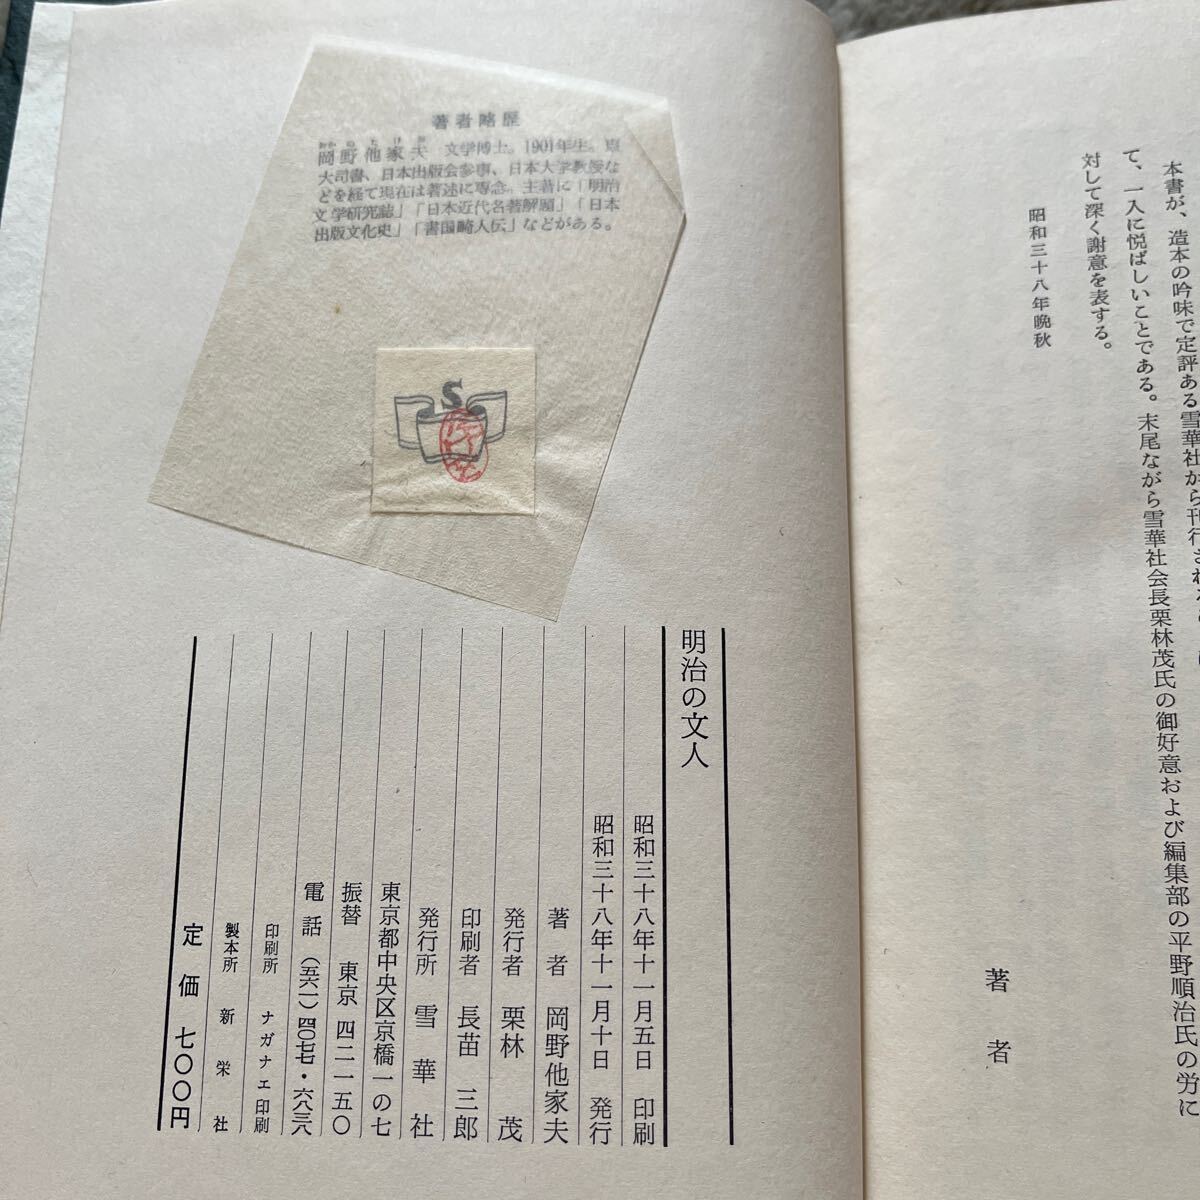 本書が、造本の吟味で定評ある雪華社から刊行され
て、一入に悦ばしいことである。末尾ながら雪華社会長栗林茂氏の御好意および編集部の平野順治氏の労に
対して深く謝意を表する。
昭和三十八年晩秋
著者
著者略歴
おかの たけお
岡野他家夫 文学博士。1901年生。東
大司書、日本出版会参事、日本大学教授な
どを経て現在は著述に専念。主著に「明治
文学研究誌」「日本近代名著解題」「日本
出版文化史」「書国畸人伝」などがある。
S
明治の文人
昭和三十八年十一月五日 印刷
昭和三十八年十一月十日 発行
著者 岡野他家夫
発行者 栗林茂
印刷者 長苗三郎
発行所 雪華社
東京都中央区京橋一の七
振替 東京 四二一五〇
電話 (五六一)四〇七七・六八三八
印刷所 ナガナエ印刷
製本所 新栄社
定価 七〇〇円